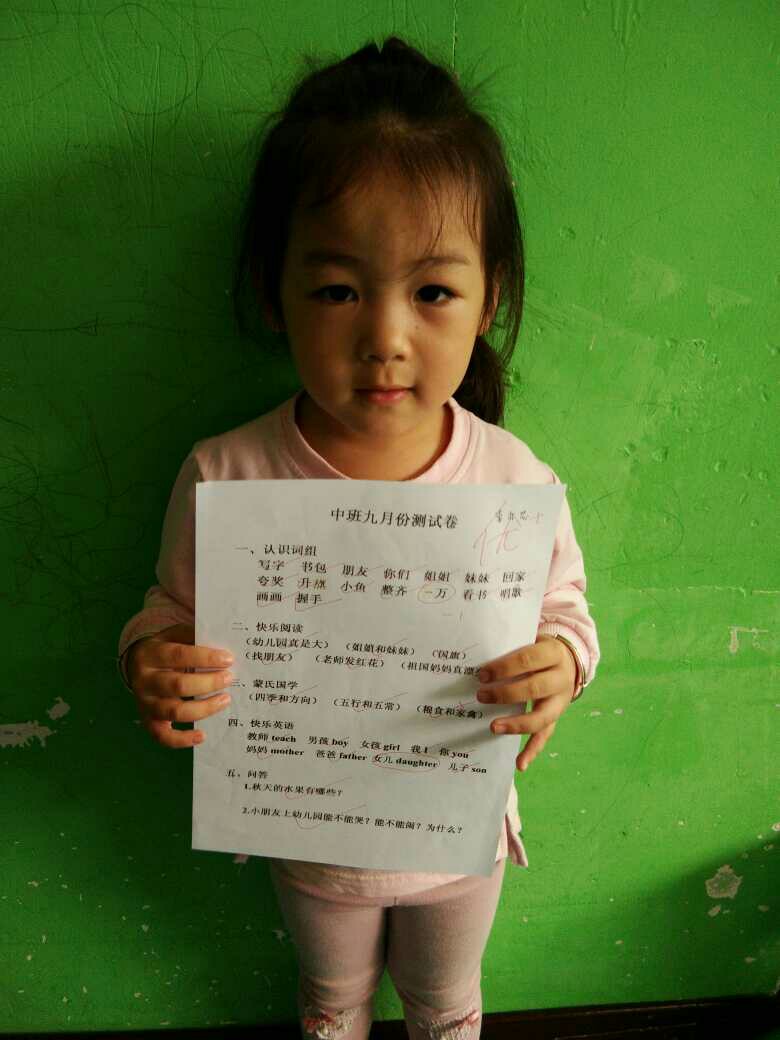 中班九月份测试卷
优
一、认识词组
写字 书包 朋友 你们 姐姐 妹妹 回家
夸奖 升旗 小鱼 整齐 一万 看书 唱歌
画画 握手
二、快乐阅读
（幼儿园真是大） （姐姐和妹妹） （国旗）
（找朋友） （老师发红花） （祖国妈妈真漂
三、蒙氏国学
（四季和方向） （五行和五常） （粮食和家禽）
四、快乐英语
教师 teach 男孩 boy 女孩 girl 我 I 你 you
妈妈 mother 爸爸 father 女儿 daughter 儿子 son
五、问答
1.秋天的水果有哪些？
2.小朋友上幼儿园能不能哭？能不能闹？为什么？